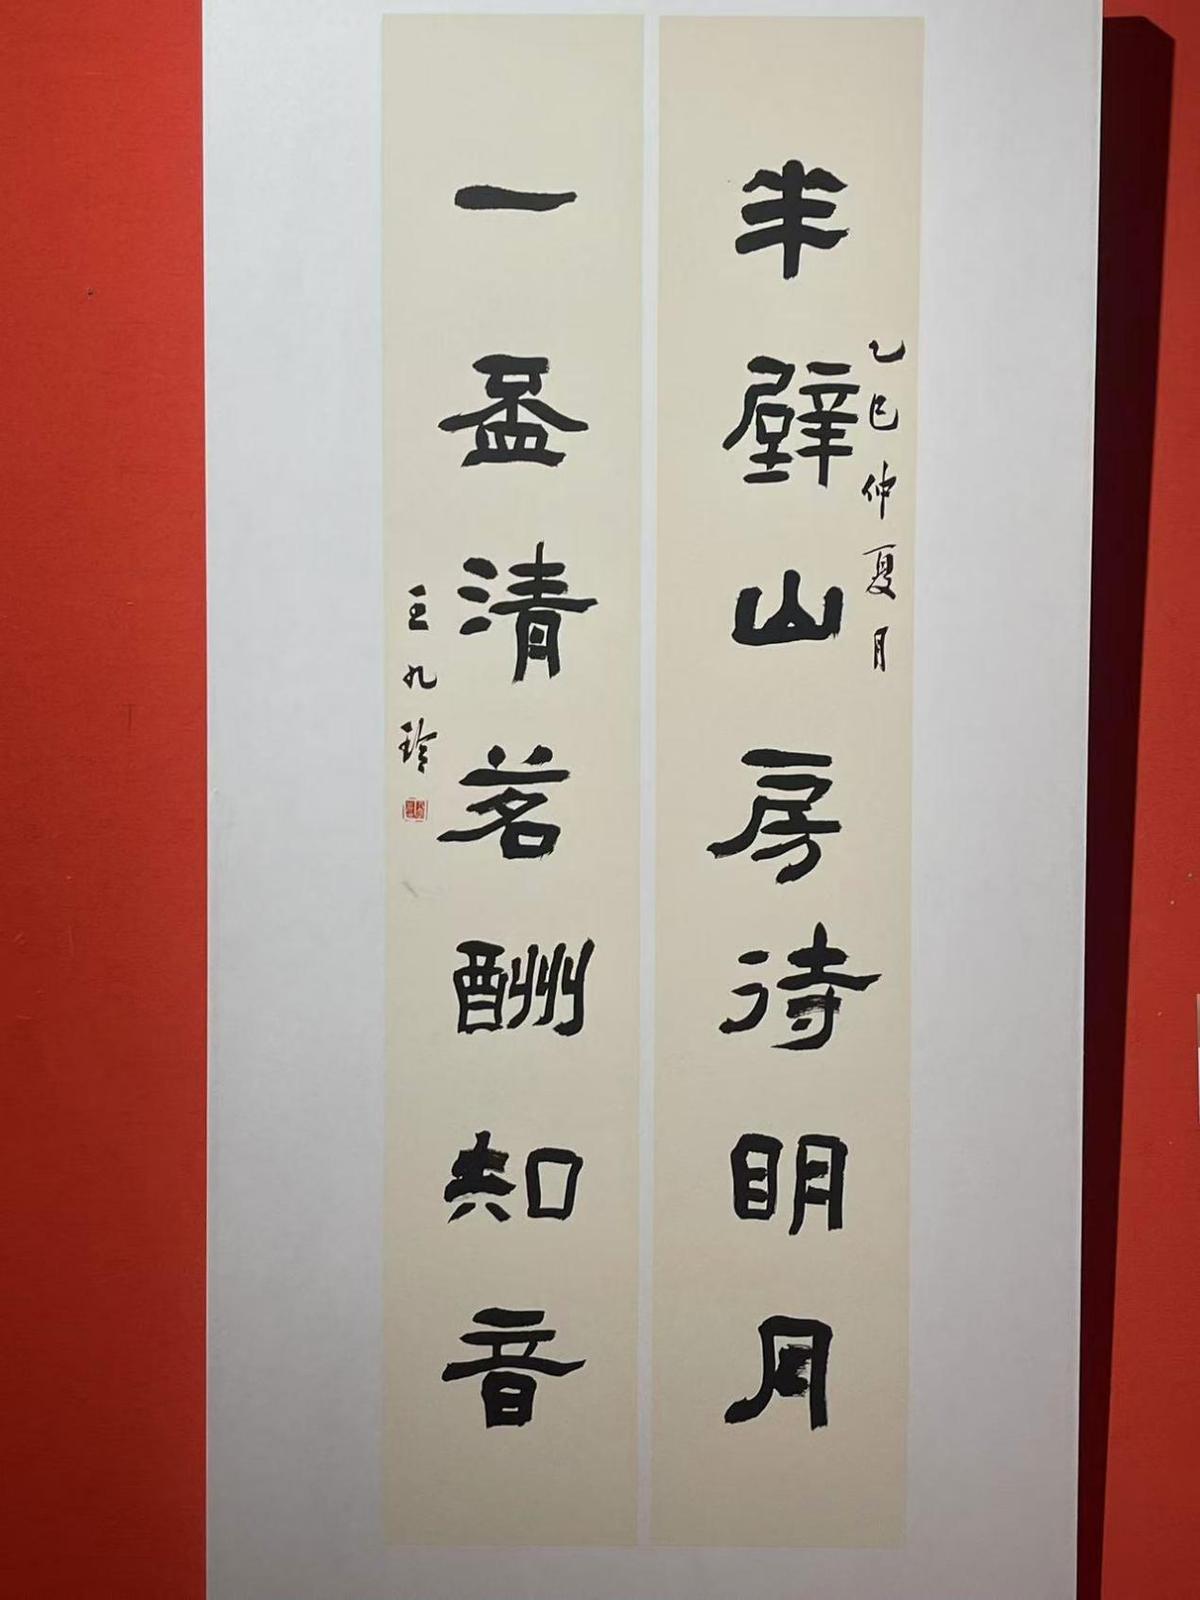 半壁山房待明月
乙巳仲夏月
一盃清茗酬知音
王九珍